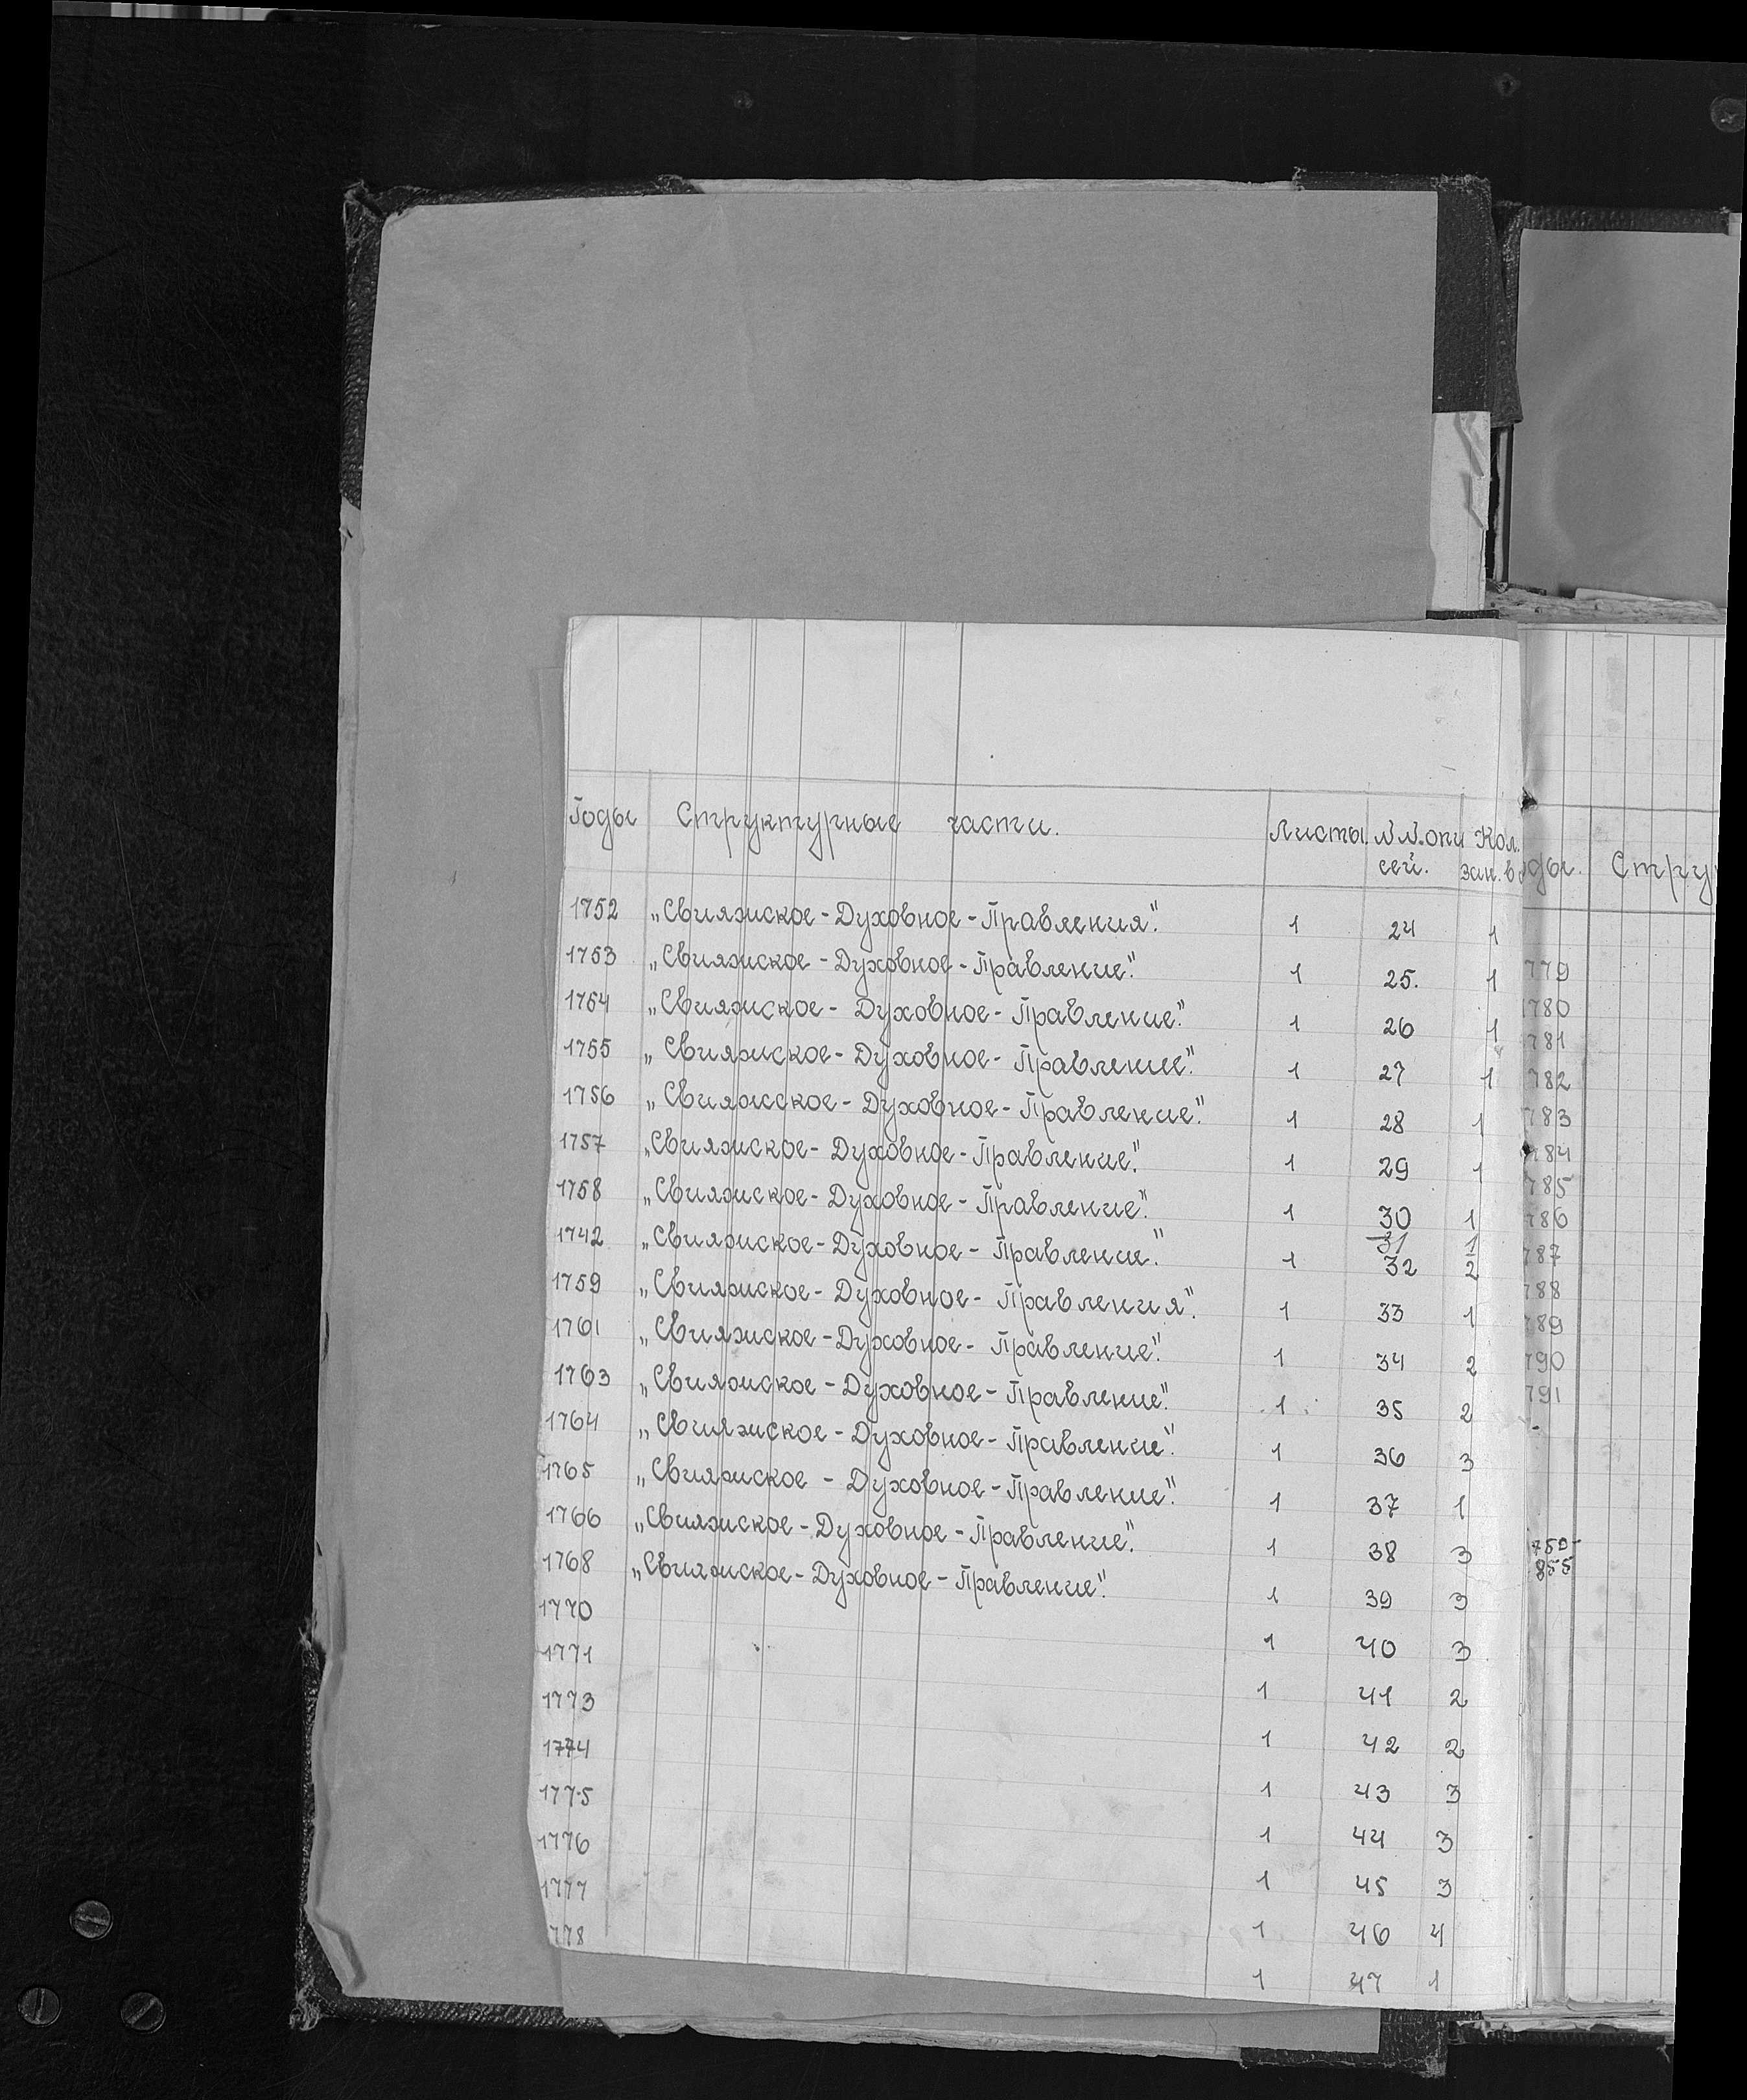 Годы Структурные части. Листы. №№ опи сей. Кол. зап. в
1752 „Свияжское-Духовное-Правления". 1 24 1
1753 „Свияжское-Духовное-Правление". 1 25. 1
1754 „Свияжское-Духовное-Правление". 1 26 1
1755 „Свияжское-Духовное-Правление". 1 27 1
1756 „Свияжсское-Духовное-Правление". 1 28 1
1757 „Свияжское-Духовное-Правление". 1 29 1
1758 „Свияжское-Духовное-Правление". 1 30 1
31 1
1742 „Свияжское-Духовное-Правление." 1 32 2
1759 „Свияжское-Духовное-Правления". 1 33 1
1761 „Свияжское-Духовное-Правление". 1 34 2
1763 „Свияжское-Духовное-Правление". 1 35 2
1764 „Свияжское-Духовное-Правление". 1 36 3
1765 „Свияжское-Духовное-Правление". 1 37 1
1766 „Свияжское-Духовное-Правление". 1 38 3
1768 „Свияжское-Духовное-Правление". 1 39 3
1770 1 40 3
1771 1 41 2
1773 1 42 2
1774 1 43 3
1775 1 44 3
1776 1 45 3
1777 1 46 4
778 1 47 1
оды. Стру
779
1780
781
782
783
784
785
786
787
788
789
790
791
759-
855